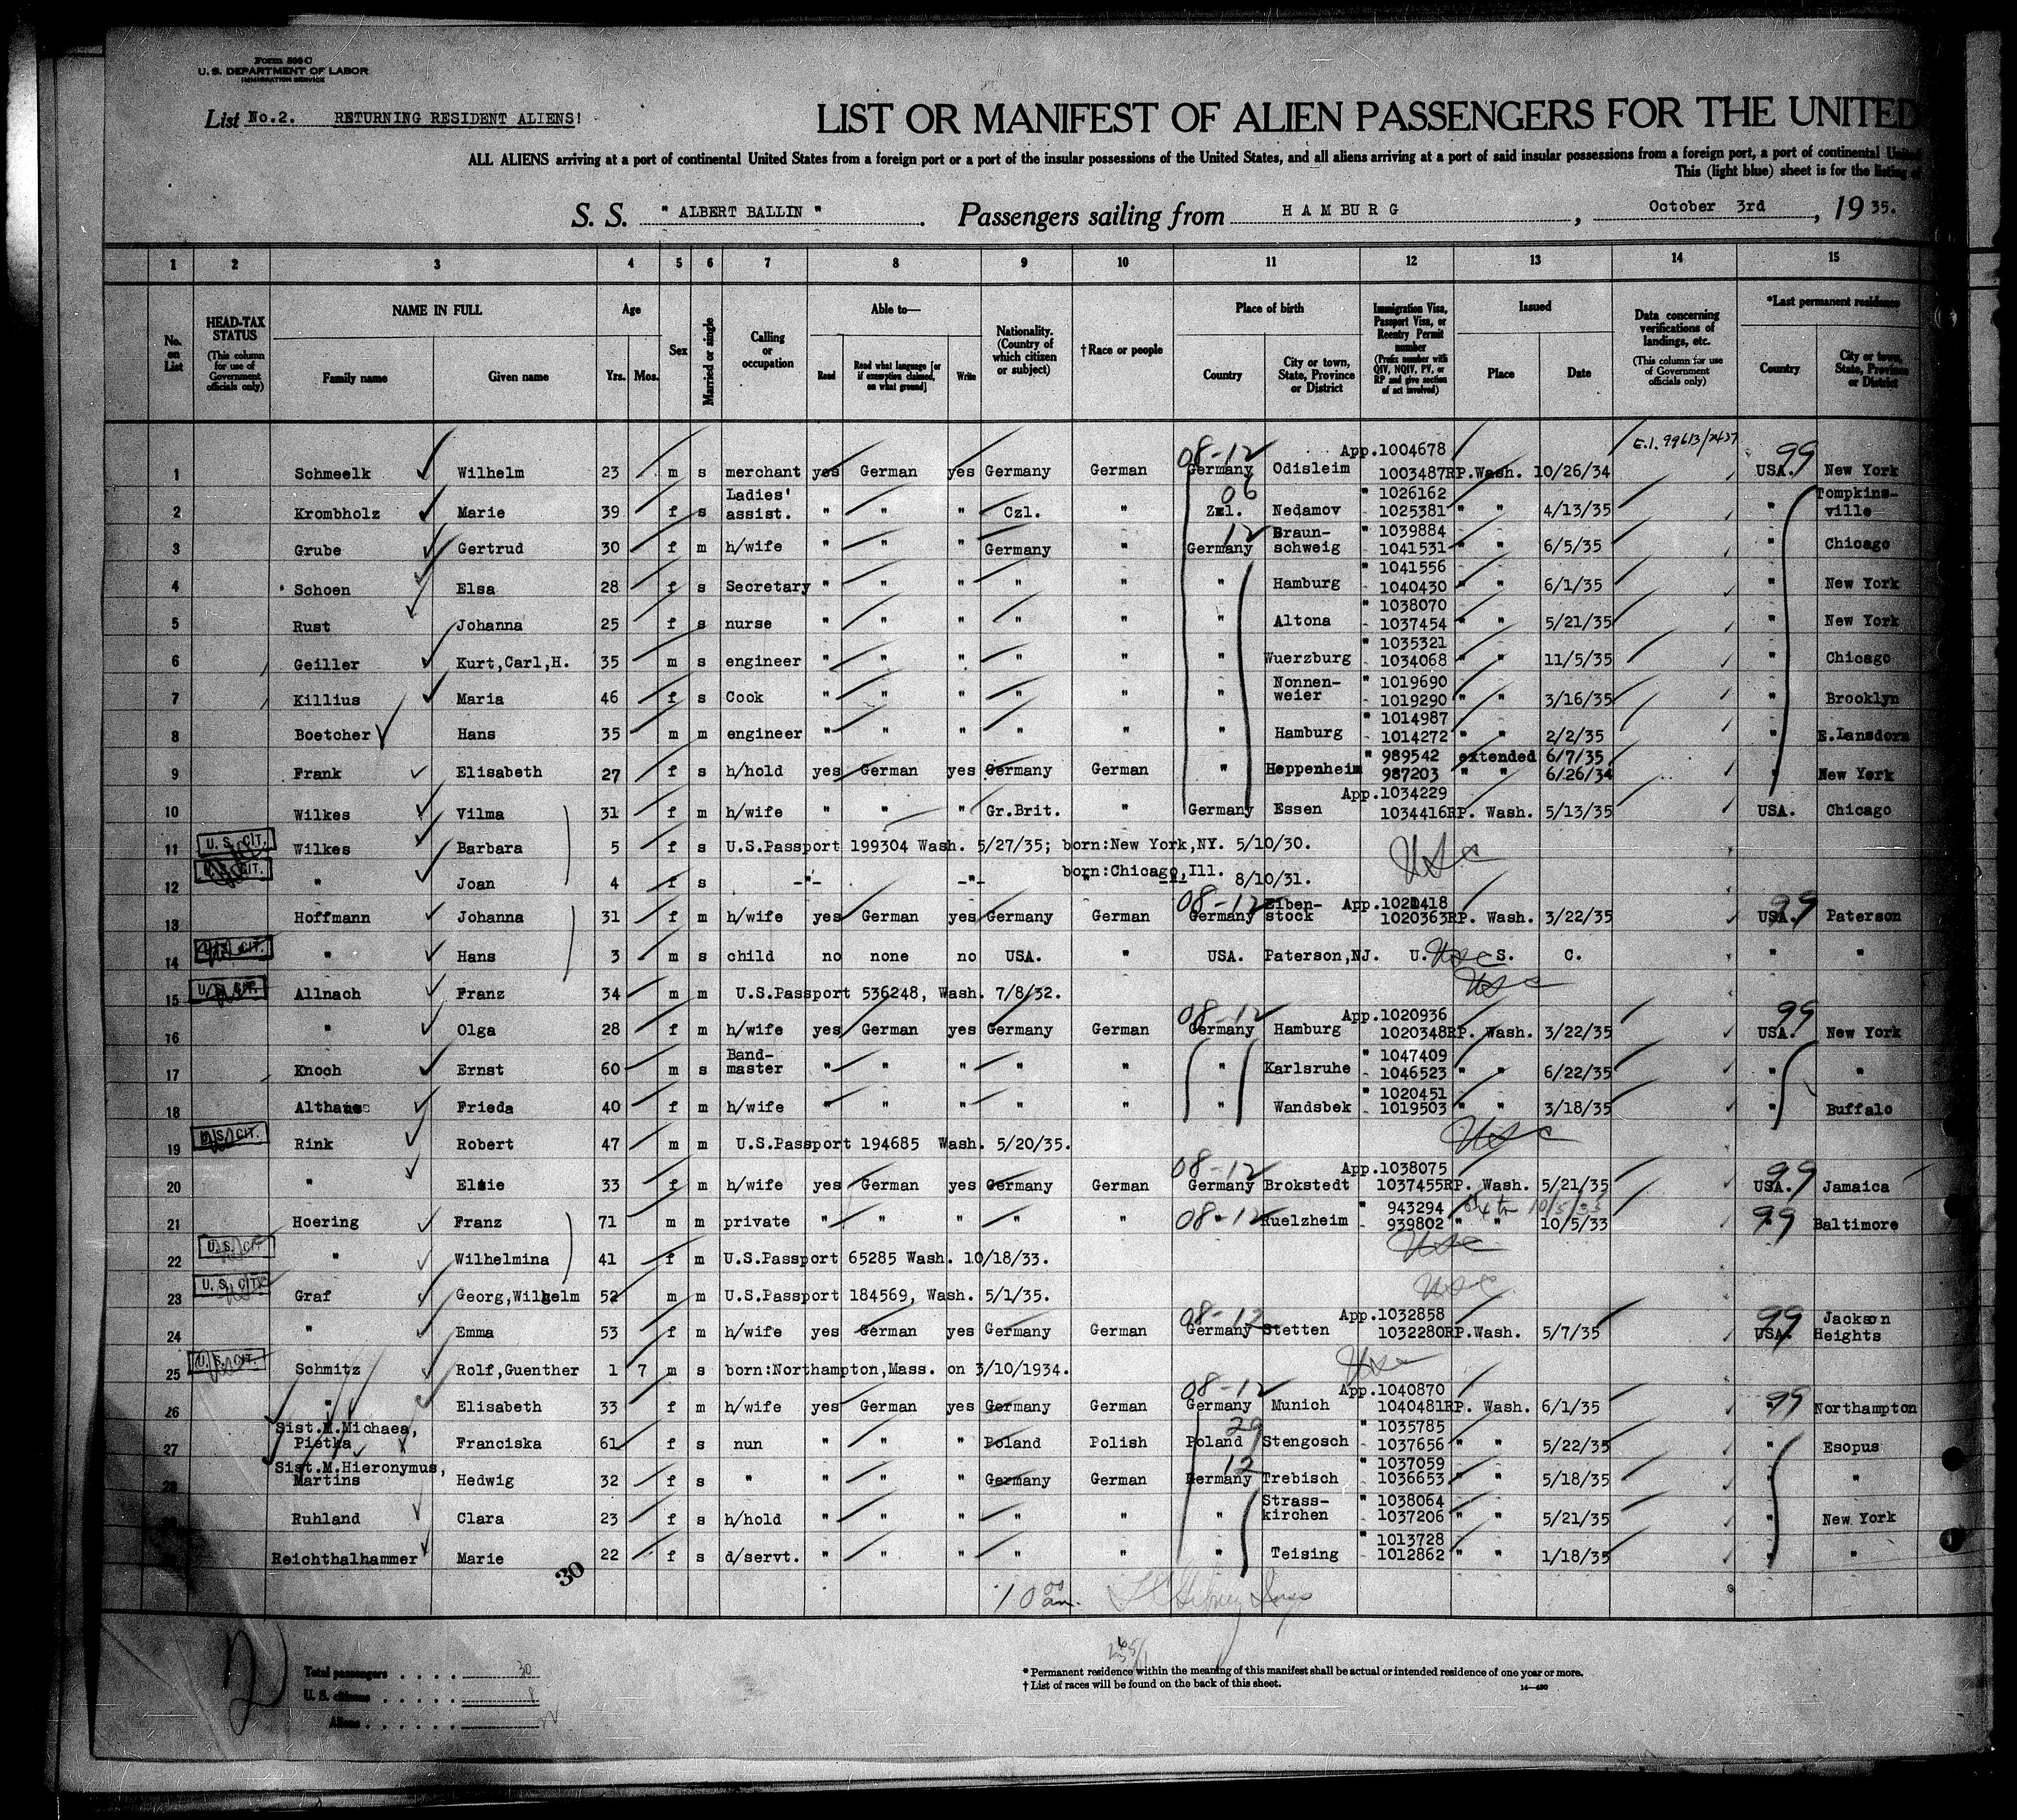 Form 500 C
U. S. DEPARTMENT OF LABOR
IMMIGRATION SERVICE
List No.2. RETURNING RESIDENT ALIENS!
LIST OR MANIFEST OF ALIEN PASSENGERS FOR THE UNITED
ALL ALIENS arriving at a port of continental United States from a foreign port or a port of the insular possessions of the United States, and all aliens arriving at a port of said insular possessions from a foreign port, a port of continental United
This (light blue) sheet is for the listing of
S. S. " ALBERT BALLIN ". Passengers sailing from HAMBURG, October 3rd, 19 35.
1 2 3 4 5 6 7 8 9 10 11 12 13 14 15
No. on List
HEAD-TAX STATUS (This column for use of Government officials only)
NAME IN FULL Family name Given name
Age Yrs. Mos.
Sex
Married or single
Calling or occupation
Able to— Read Read what language [or if exemption claimed, on what ground] Write
Nationality. (Country of which citizen or subject)
†Race or people
Place of birth Country City or town, State, Province or District
Immigration Visa, Passport Visa, or Reentry Permit number (Prefix number with QIV, NQIV, PV, or RP and give section of act involved)
Issued Place Date
Data concerning verifications of landings, etc. (This column for use of Government officials only)
*Last permanent residence Country City or town, State, Province or District
08-12 App.1004678 E.I. 99613/2437 99
1 Schmeelk Wilhelm 23 m s merchant yes German yes Germany German Germany Odisleim 1003487RP.Wash. 10/26/34 USA. New York
Ladies' 06 " 1026162 Tompkins-
2 Krombholz Marie 39 f s assist. " " " Czl. " Zzl. Nedamov 1025381 " " 4/13/35 " ville
12 Braun- " 1039884
3 Grube Gertrud 30 f m h/wife " " " Germany " Germany schweig 1041531 " " 6/5/35 " Chicago
" 1041556
4 Schoen Elsa 28 f s Secretary " " " " " " Hamburg 1040430 " " 6/1/35 " New York
" 1038070
5 Rust Johanna 25 f s nurse " " " " " " Altona 1037454 " " 5/21/35 " New York
" 1035321
6 Geiller Kurt,Carl,H. 35 m s engineer " " " " " " Wuerzburg 1034068 " " 11/5/35 " Chicago
Nonnen- " 1019690
7 Killius Maria 46 f s Cook " " " " " " weier 1019290 " " 3/16/35 " Brooklyn
" 1014987
8 Boetcher Hans 35 m m engineer " " " " " " Hamburg 1014272 " " 2/2/35 " E.Lansdorn
" 989542 extended 6/7/35
9 Frank Elisabeth 27 f s h/hold yes German yes Germany German " Heppenheim 987203 " " 6/26/34 " New York
App.1034229
10 Wilkes Vilma 31 f m h/wife " " " Gr.Brit. " Germany Essen 1034416RP. Wash. 5/13/35 USA. Chicago
11 U. S. CIT. Wilkes Barbara 5 f s U.S.Passport 199304 Wash. 5/27/35; born:New York,NY. 5/10/30. USC
U. S. CIT. born:Chicago,Ill.
12 " Joan 4 f s -"- -"- 8/10/31.
08-12 Eiben- App.1020418 99
13 Hoffmann Johanna 31 f m h/wife yes German yes Germany German Germany stock 1020363RP. Wash. 3/22/35 USA. Paterson
14 U. S. CIT. " Hans 3 m s child no none no USA. " USA. Paterson,NJ. U. USC S. C. " "
15 U. S. CIT. Allnach Franz 34 m m U.S.Passport 536248, Wash. 7/8/32. USC
08-12 App.1020936 99
16 " Olga 28 f m h/wife yes German yes Germany German Germany Hamburg 1020348RP. Wash. 3/22/35 USA. New York
Band- " 1047409
17 Knoch Ernst 60 m s master " " " " " " Karlsruhe 1046523 " " 6/22/35 " "
" 1020451
18 Althauss Frieda 40 f m h/wife " " " " " " Wandsbek 1019503 " " 3/18/35 " Buffalo
19 U. S. CIT. Rink Robert 47 m m U.S.Passport 194685 Wash. 5/20/35. USC
08-12 App.1038075 99
20 " Elsie 33 f m h/wife yes German yes Germany German Germany Brokstedt 1037455RP. Wash. 5/21/35 USA. Jamaica
" 943294 10/5/35
21 Hoering Franz 71 m m private " " " " " 08-12 Ruelzheim 939802 " " 10/5/33 99 Baltimore
22 U.S. CIT " Wilhelmina 41 f m U.S.Passport 65285 Wash. 10/18/33. USC
23 U. S. CIT Graf Georg,Wilhelm 52 m m U.S.Passport 184569, Wash. 5/1/35. USC
08-12 App.1032858 99 Jackson
24 " Emma 53 f m h/wife yes German yes Germany German Germany Stetten 1032280RP.Wash. 5/7/35 USA. Heights
25 U. S. CIT. Schmitz Rolf,Guenther 1 7 m s born:Northampton,Mass. on 3/10/1934. USC
08-12 App.1040870
26 " Elisabeth 33 f m h/wife yes German yes Germany German Germany Munich 1040481RP. Wash. 6/1/35 99 Northampton
Sist.M.Michaea, 29 " 1035785
27 Pietka Franciska 61 f s nun " " " Poland Polish Poland Stengosch 1037656 " " 5/22/35 " Esopus
Sist.M.Hieronymus, 12 " 1037059
28 Martins Hedwig 32 f s " " " " Germany German Germany Trebisch 1036653 " " 5/18/35 " "
Strass- " 1038064
Ruhland Clara 23 f s h/hold " " " " " " kirchen 1037206 " " 5/21/35 " New York
" 1013728
Reichthalhammer Marie 22 f s d/servt. " " " " " " Teising 1012862 " " 1/18/35 " "
30
10 00 am.
2
Total passengers . . . . 30
U. S. citizens . . . . . 8
Aliens . . . . . .
* Permanent residence within the meaning of this manifest shall be actual or intended residence of one year or more.
† List of races will be found on the back of this sheet. 14—430